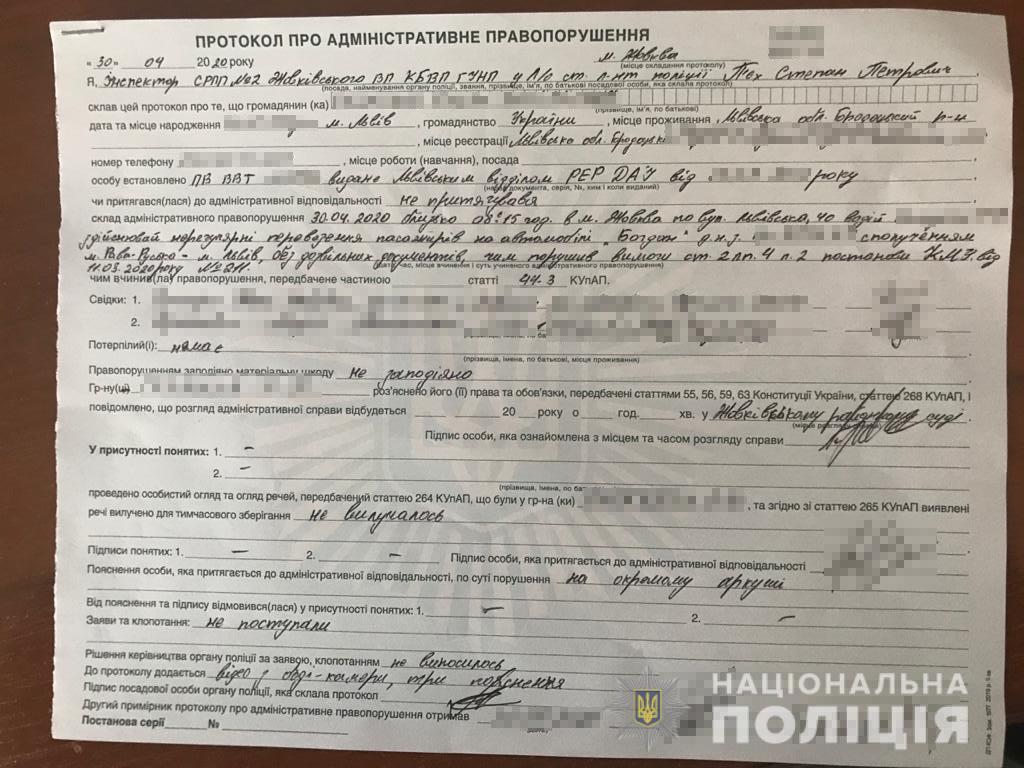 ПРОТОКОЛ ПРО АДМІНІСТРАТИВНЕ ПРАВОПОРУШЕННЯ
« 30 » 04 2020 року м. Жовква
(місце складання протоколу)
Я, Інспектор СРПП №2 Жовківського ВП КБВП ГУНП у Л/о ст. л-нт поліції Пех Степан Петрович
(посада, найменування органу поліції, звання, прізвище, ім'я, по батькові посадової особи, яка склала протокол)
склав цей протокол про те, що громадянин (ка)
(прізвище, ім'я, по батькові)
дата та місце народження м. Львів , громадянство України , місце проживання Львівська обл. Городоцький р-н
, місце реєстрації Львівська обл. Городоцький
номер телефону , місце роботи (навчання), посада
особу встановлено ПВ ВВТ видане Львівським відділом РЕР ДАІ від року
(назва документа, серія, №, ким і коли виданий)
чи притягався(лася) до адміністративної відповідальності не притягувався
склад адміністративного правопорушення 30.04.2020 близько 08:15 год. в м. Жовква по вул. Львівська, 40 водій
здійснював нерегулярні перевезення пасажирів на автомобілі „Богдан" д.н.з. сполученням
м. Рава-Руська - м. Львів, без дозвільних документів, чим порушив вимоги ст. 2 пп. 4 п. 2 постанови К.М.У. від
11.03.2020 року № 211.
(дата, час, місце вчинення і суть учиненого адміністративного правопорушення)
чим вчинив(ла) правопорушення, передбачене частиною статті 44-3 КУпАП.
Свідки: 1.
2.
Потерпілий(і): немає
(прізвища, імена, по батькові, місце проживання)
Правопорушенням заподіяно матеріальну шкоду не заподіяно
Гр-ну(ці) роз'яснено його (її) права та обов'язки, передбачені статтями 55, 56, 59, 63 Конституції України, статтею 268 КУпАП, і
повідомлено, що розгляд адміністративної справи відбудеться 20 року о год. хв. у Жовківському районному суді
(місце розгляду)
Підпис особи, яка ознайомлена з місцем та часом розгляду справи
У присутності понятих: 1. –
2. –
(прізвища, імена, по
проведено особистий огляд та огляд речей, передбачений статтею 264 КУпАП, що були у гр-на (ки) , та згідно зі статтею 265 КУпАП виявлені
речі вилучено для тимчасового зберігання не вилучалось
Підписи понятих: 1. – 2. – Підпис особи, яка притягається до адміністративної відповідальності
Пояснення особи, яка притягається до адміністративної відповідальності, по суті порушення на окремому аркуші
Від пояснення та підпису відмовився(лася) у присутності понятих: 1. – 2. –
Заяви та клопотання: не поступали
Рішення керівництва органу поліції за заявою, клопотанням не виносилось
До протоколу додається відео з бодi-камери, три пояснення
Підпис посадової особи органу поліції, яка склала протокол
Другий примірник протоколу про адміністративне правопорушення отримав
Постанова серії №
НАЦІОНАЛЬНА
ПОЛІЦІЯ